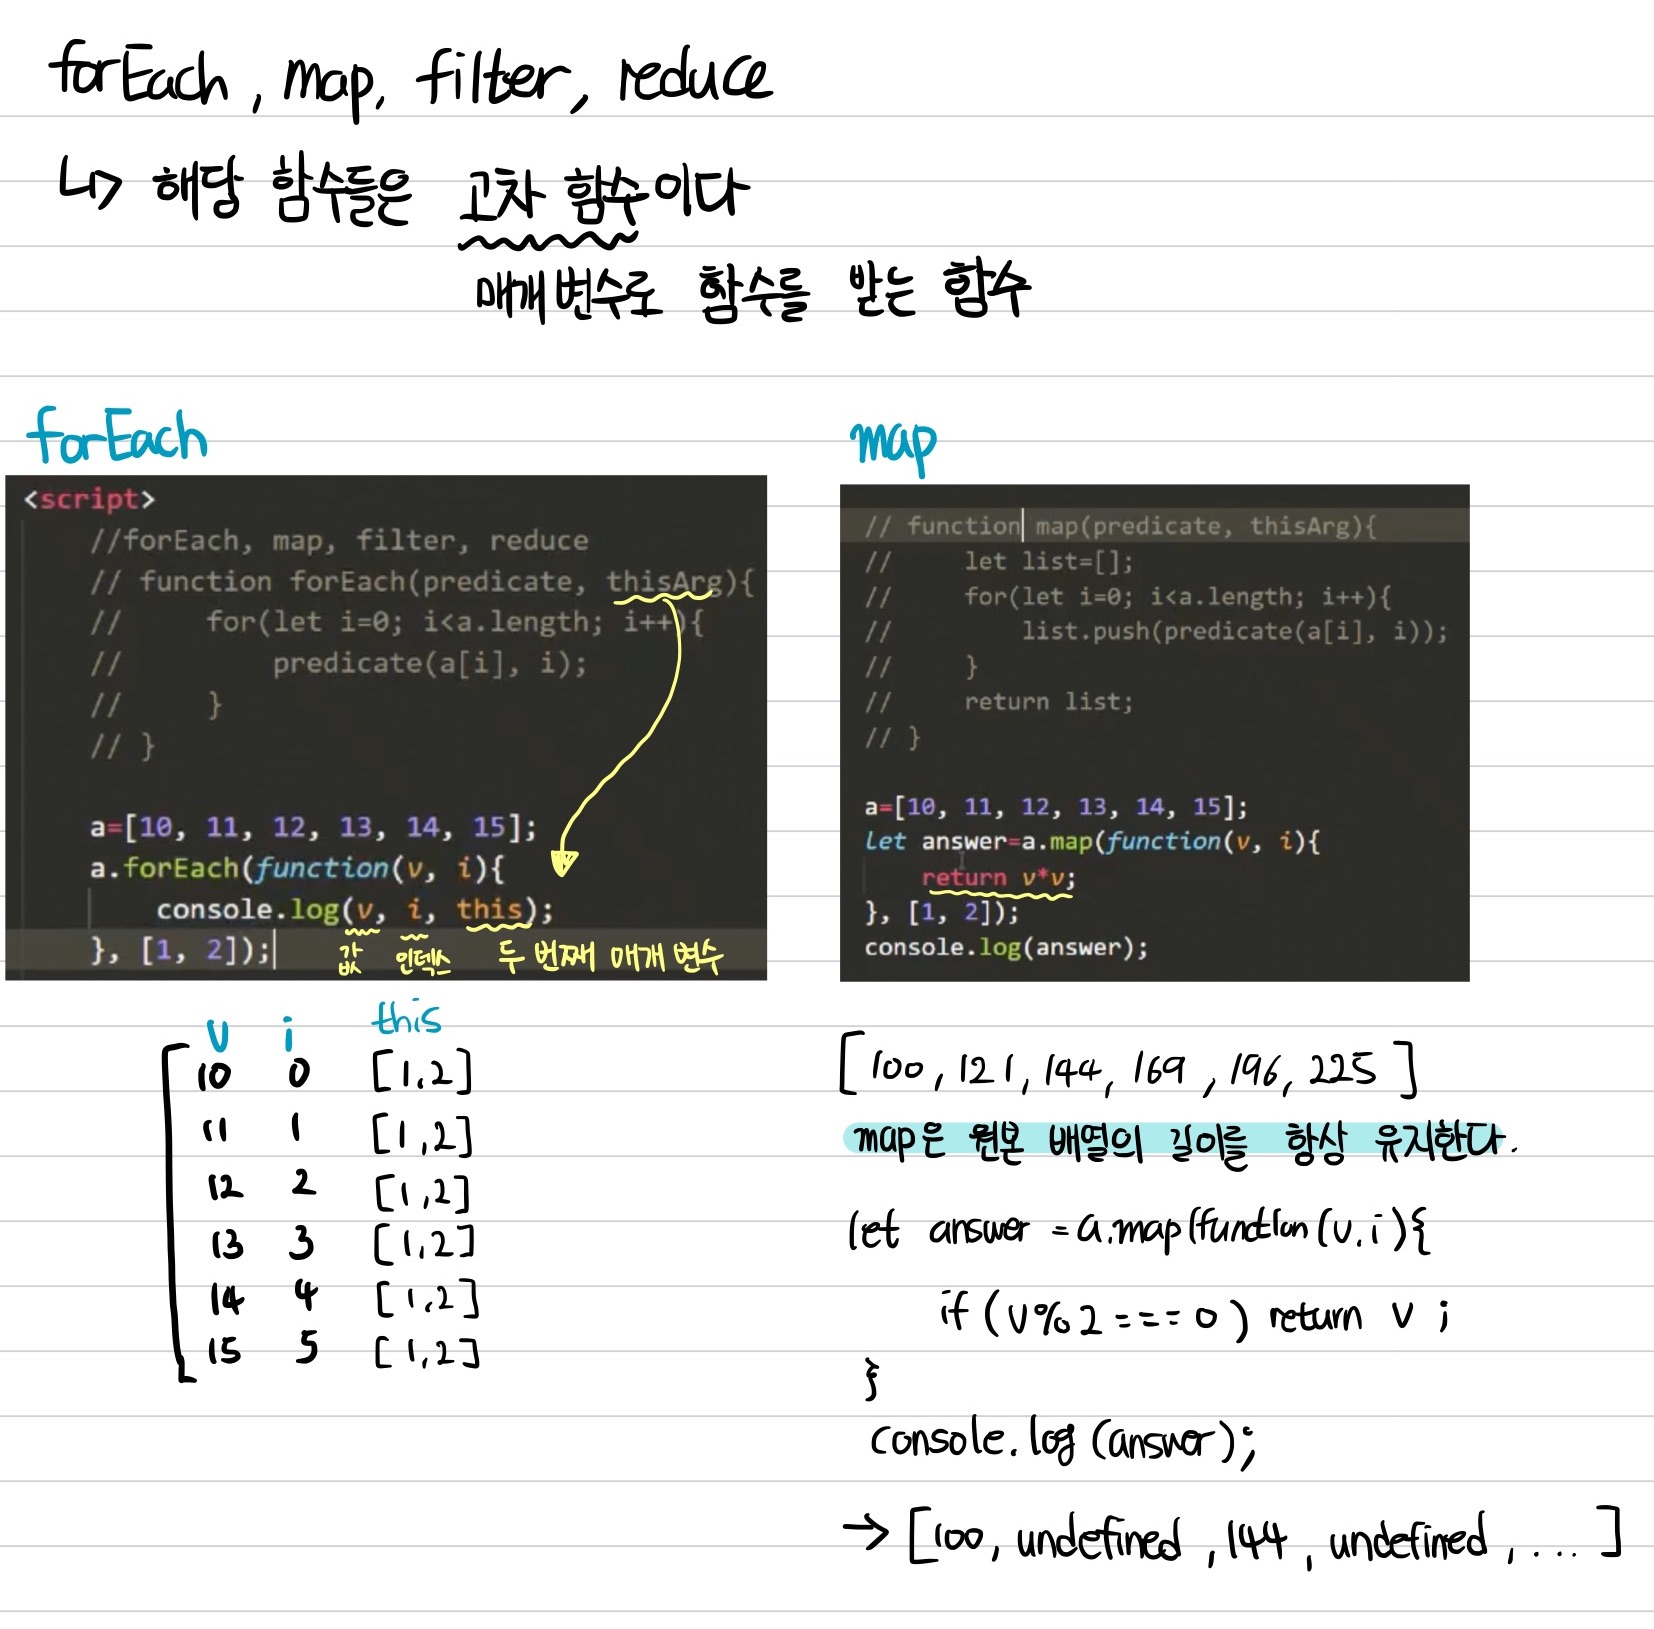 forEach, map, filter, reduce
↳ 해당 함수들은 고차 함수이다
매개변수로 함수를 받는 함수
forEach
<script>
//forEach, map, filter, reduce
// function forEach(predicate, thisArg){
//     for(let i=0; i<a.length; i++){
//         predicate(a[i], i);
//     }
// }
a=[10, 11, 12, 13, 14, 15];
a.forEach(function(v, i){
console.log(v, i, this);
}, [1, 2]);
값 인덱스 두 번째 매개 변수
v i this
10 0 [1,2]
11 1 [1,2]
12 2 [1,2]
13 3 [1,2]
14 4 [1,2]
15 5 [1,2]
map
// function map(predicate, thisArg){
//     let list=[];
//     for(let i=0; i<a.length; i++){
//         list.push(predicate(a[i], i));
//     }
//     return list;
// }
a=[10, 11, 12, 13, 14, 15];
let answer=a.map(function(v, i){
return v*v;
}, [1, 2]);
console.log(answer);
[100, 121, 144, 169, 196, 225]
map은 원본 배열의 길이를 항상 유지한다.
let answer = a.map(function(v, i){
if (v%2 === 0) return v ;
}
console.log (answer);
→ [100, undefined, 144, undefined, ... ]